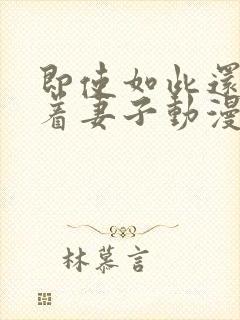 即使如此還
着妻子動漫
林慕言